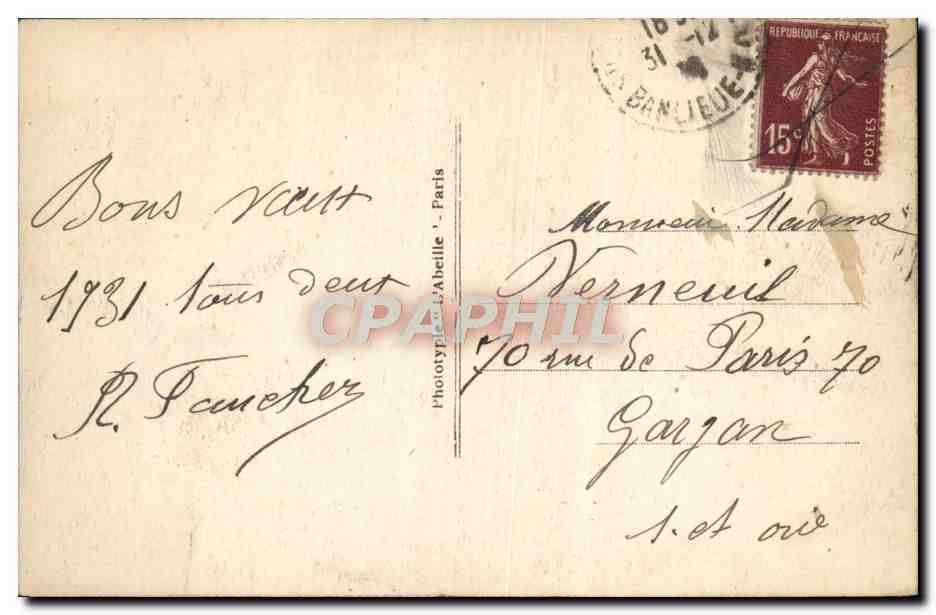 18
31 -12
BANLIEUE
REPUBLIQUE FRANÇAISE
15c
POSTES
Bons vœux
1931 tous deux
R. Faucher
Phototypie "L'Abeille" - Paris
Monsieur Madame
Verneuil
70 rue de Paris 70
Gargan
S. et oise
CPAPHIL